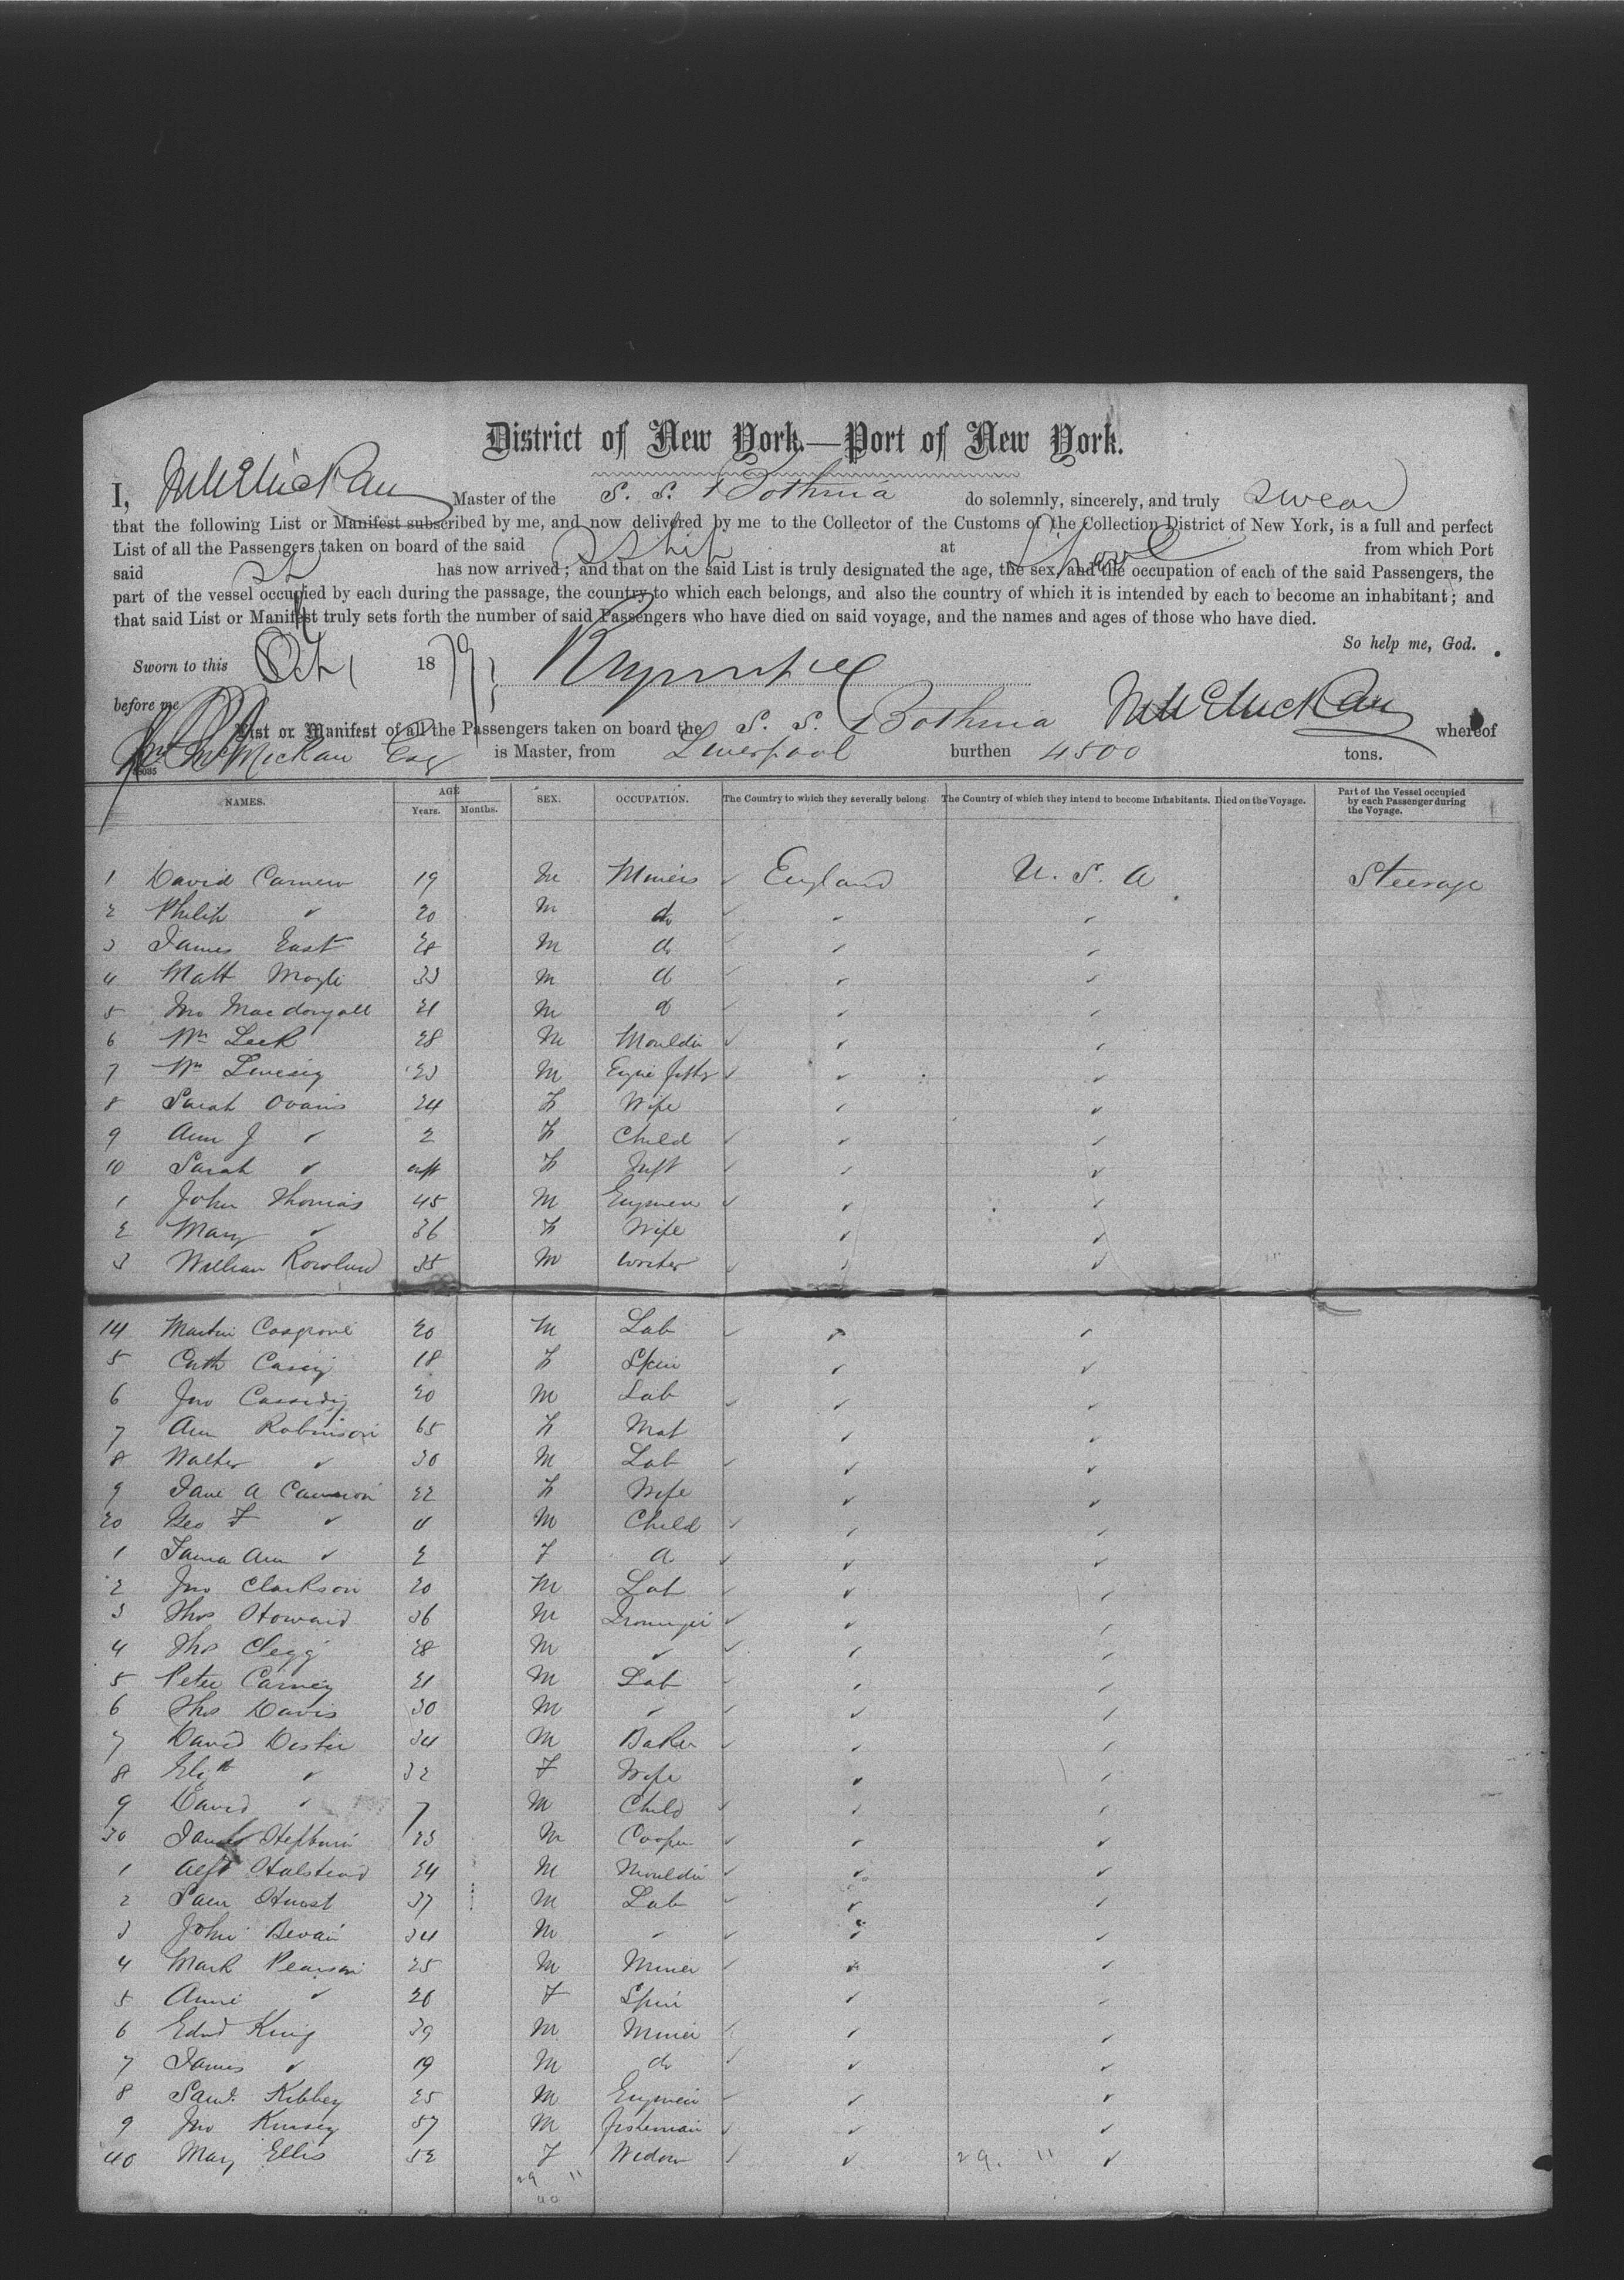 District of New York.—Port of New York.
I, Master of the S. S. Bothnia do solemnly, sincerely, and truly swear
that the following List or Manifest subscribed by me, and now delivered by me to the Collector of the Customs of the Collection District of New York, is a full and perfect
List of all the Passengers taken on board of the said at from which Port
said has now arrived; and that on the said List is truly designated the age, the sex, and the occupation of each of the said Passengers, the
part of the vessel occupied by each during the passage, the country to which each belongs, and also the country of which it is intended by each to become an inhabitant; and
that said List or Manifest truly sets forth the number of said Passengers who have died on said voyage, and the names and ages of those who have died.
So help me, God.
Sworn to this Oct 1 1879
before me
List or Manifest of all the Passengers taken on board the S. S. Bothnia whereof
McMickan Esq is Master, from Liverpool burthen 4500 tons.
NAMES. AGE Years. Months. SEX. OCCUPATION. The Country to which they severally belong. The Country of which they intend to become Inhabitants. Died on the Voyage. Part of the Vessel occupied by each Passenger during the Voyage.
1 David 19 M Miners ✓ England U. S. A Steerage
2 Philip ✓ 20 M do ✓ ✓ ✓
3 James East 28 M do ✓ ✓ ✓
4 Matt Moyle 33 M do ✓ ✓ ✓
5 Jno Macdongall 21 M do ✓ ✓ ✓
6 Wm Leek 28 M Moulder ✓ ✓ ✓
7 Wm 23 M ✓ ✓ ✓
8 Sarah 24 F Wife ✓ ✓
9 Ann J ✓ 2 F Child ✓ ✓ ✓
10 Sarah ✓ inft F Inft ✓ ✓ ✓
1 John Thomas 45 M ✓ ✓ ✓
2 Mary ✓ 36 F Wife ✓ ✓
3 William Rowland 35 M ✓ ✓ ✓
14 Martin Cosgrove 20 M Lab ✓ ✓ ✓
5 Cath Casey 18 F Spin ✓ ✓
6 Jno Cassidy 20 M Lab ✓ ✓ ✓
7 Ann Robinson 65 F Mat ✓ ✓
8 Walter ✓ 30 M Lab ✓ ✓ ✓
9 Jane A Cameron 22 F Wife ✓ ✓
20 Geo F ✓ 4 M Child ✓ ✓ ✓
1 Ann ✓ 2 F ✓ ✓ ✓
2 Jno Clarkson 20 M Lab ✓ ✓ ✓
3 Thos Howard 36 M ✓ ✓ ✓
4 Thos Clegg 28 M ✓ ✓ ✓ ✓
5 Peter Carney 21 M Lab ✓ ✓ ✓
6 Thos Davis 30 M ✓ ✓ ✓ ✓
7 David 34 M Baker ✓ ✓ ✓
8 Elizth ✓ 32 F Wife ✓ ✓
9 David ✓ 7 M Child ✓ ✓ ✓
30 James Hepburn 23 M Cooper ✓ ✓ ✓
1 Alfd Halstead 24 M Moulder ✓ ✓ ✓
2 Sam Hurst 37 M Lab ✓ ✓ ✓
3 John Bevan 34 M ✓ ✓ ✓ ✓
4 Mark Pearson 25 M Miner ✓ ✓ ✓
5 Annie ✓ 26 F Spin ✓ ✓
6 Edwd King 39 M Miner ✓ ✓ ✓
7 James ✓ 19 M do ✓ ✓ ✓
8 Saml Kibbey 25 M ✓ ✓ ✓
9 Jno 57 M ✓ ✓ ✓
40 Mary Ellis 52 F Widow ✓ ✓ 29. 11 ✓
29 11
40